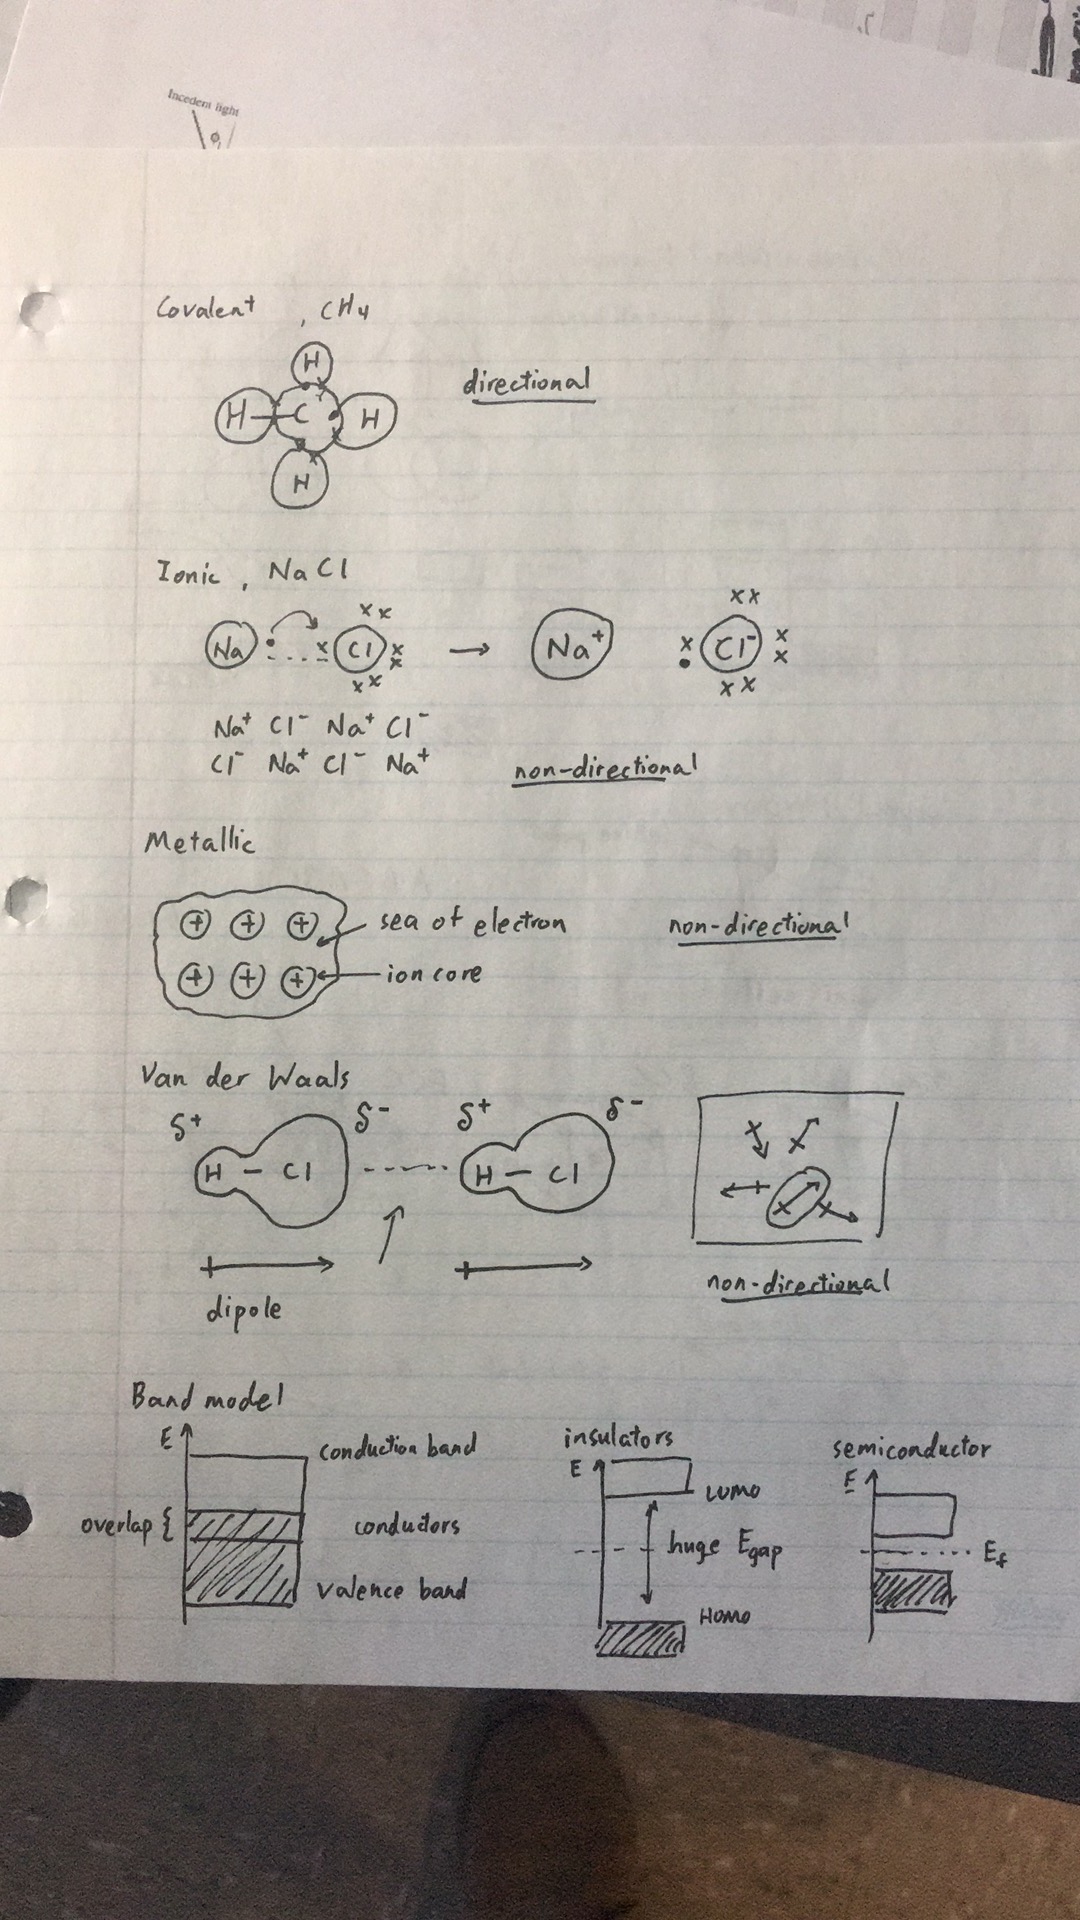 Incedent light
Covalent , CH4
H
H C H
directional
H
Ionic , NaCl
Na Cl → Na+ Cl-
Na+ Cl- Na+ Cl-
Cl- Na+ Cl- Na+
non-directional
Metallic
+ + +
sea of electron
non-directional
+ + +
ion core
Van der Waals
δ+ δ- δ+ δ-
H - Cl H - Cl
dipole
non-directional
Band model
E
conduction band
overlap {
conductors
valence band
insulators
E
LUMO
huge Egap
HOMO
semiconductor
E
Ef